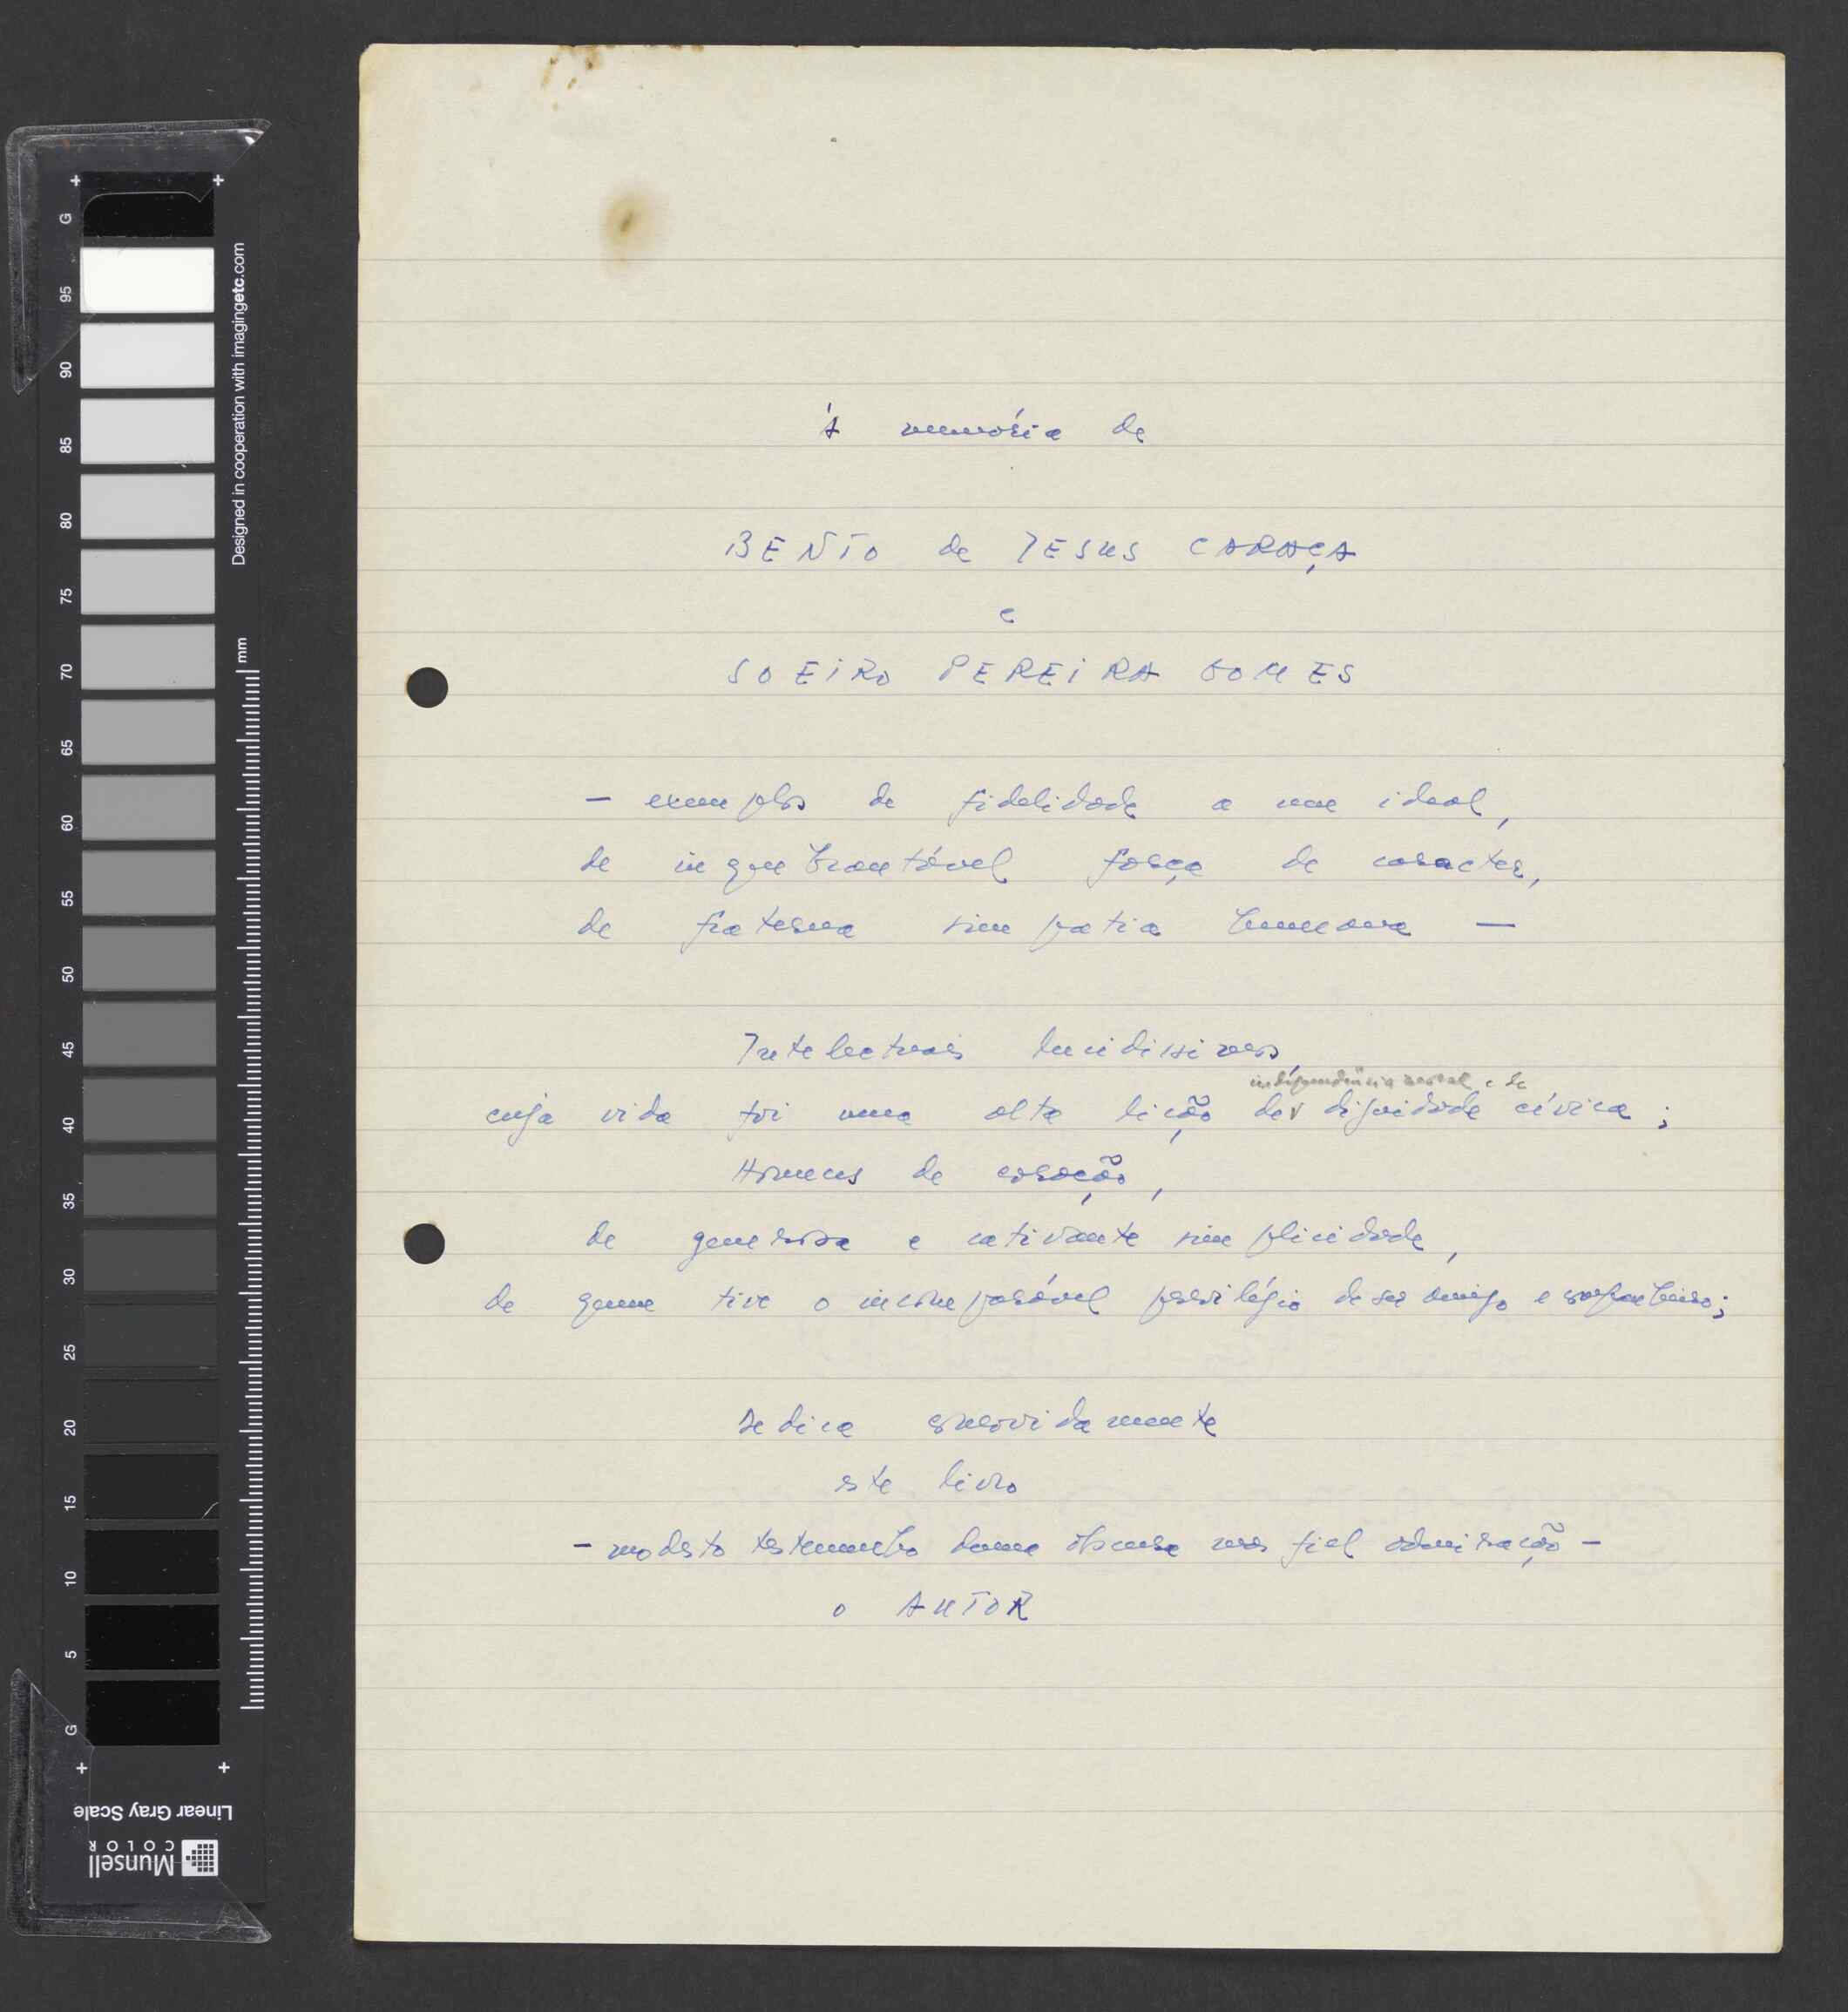 G
95
90
85
80
75
70
65
60
55
50
45
40
35
30
25
20
15
10
5
G
Designed in cooperation with imagingetc.com
mm
Linear Gray Scale
Munsell
COLOR
À memória de
BENTO de JESUS CARAÇA
e
SOEIRO PEREIRA GOMES
— exemplos de fidelidade a um ideal,
de inquebrantável força de caracter,
de fraterna simpatia humana —
Intelectuais lucidissimos,
independência moral e de
cuja vida foi uma alta lição de dignidade cívica;
Homens de coração,
de generosa e cativante simplicidade,
de quem tive o incomparável privilégio de ser amigo e companheiro;
dedica comovidamente
este livro
- modesto testemunho duma obscura mas fiel admiração -
o AUTOR